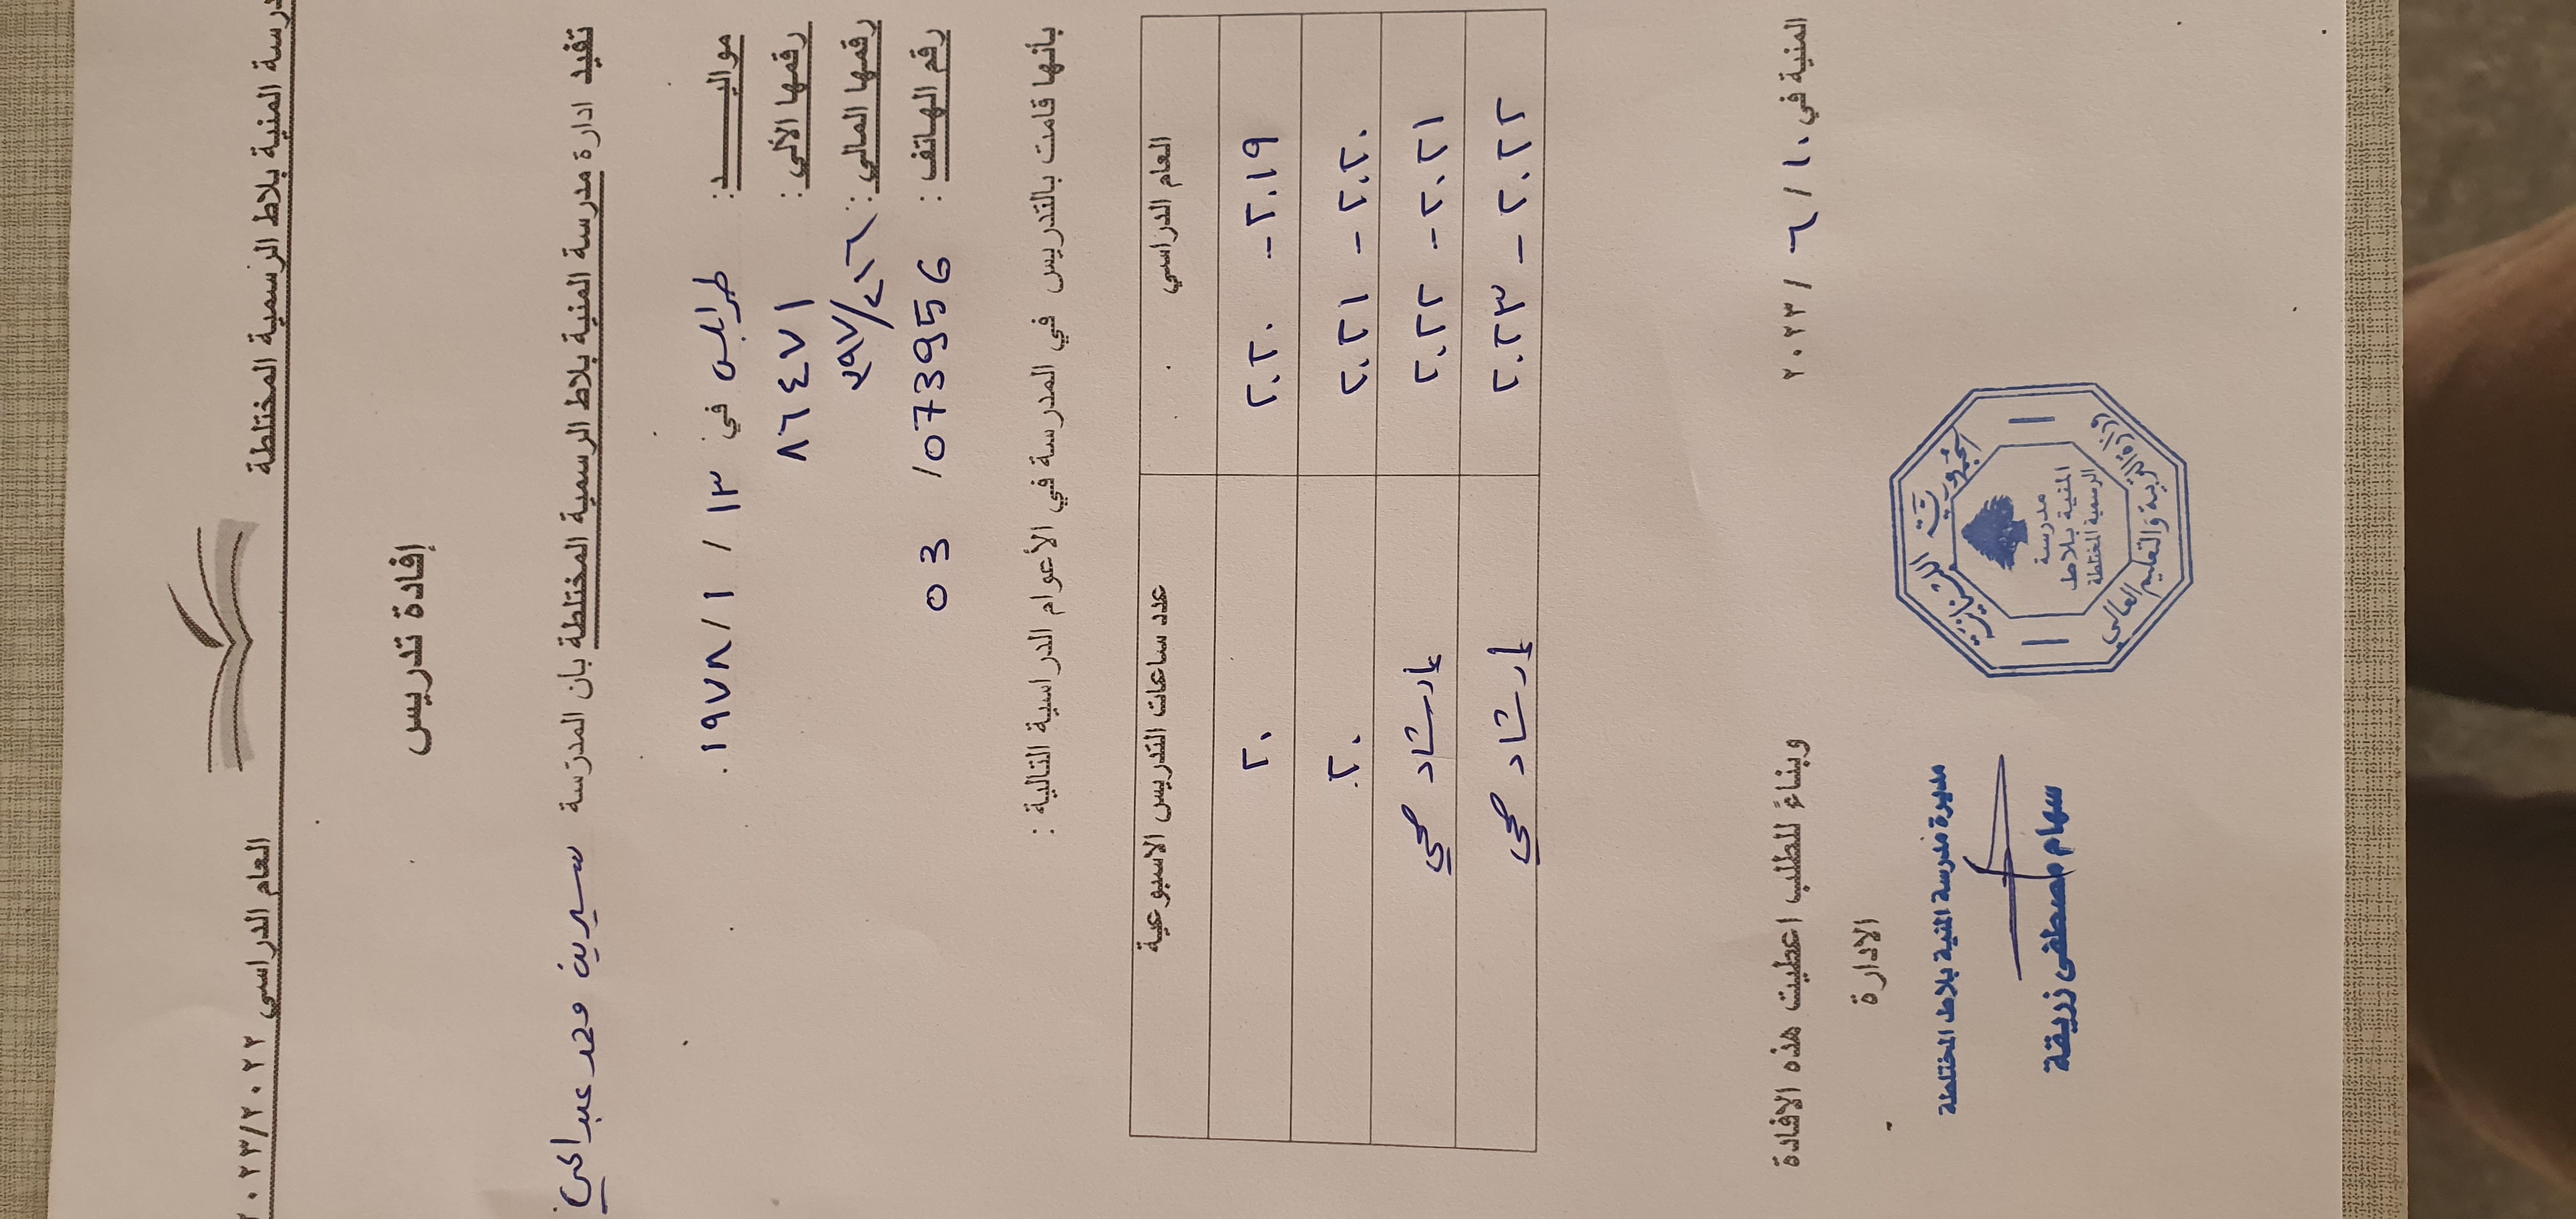 مدرسة المنية بلاط الرسمية المختلطة
العام الدراسي ٢٠٢٣/٢٠٢٢
إفادة تدريس
تفيد ادارة مدرسة المنية بلاط الرسمية المختلطة بان المدرّسة سيرين محمد عبد الحي
مواليـــــد: طرابلس في ١٣ / ١ / ١٩٧٨.
رقمها الألي: ٨٦٤٧١
رقمها المالي:
رقم الهاتف: 03 /073956
بأنها قامت بالتدريس في المدرسة في الأعوام الدراسية التالية:
العام الدراسي عدد ساعات التدريس الاسبوعية
٢٠١٩ - ٢٠٢٠ ٢٠
٢٠٢٠ - ٢٠٢١ ٢٠
٢٠٢١ - ٢٠٢٢ إرشاد صحي
٢٠٢٢ - ٢٠٢٣ إرشاد صحي
المنية في ١٠ / ٦ / ٢٠٢٣
وبناءً للطلب اعطيت هذه الافادة
الادارة
مديرة مدرسة المنية بلاط المختلطة
سهام مصطفى زريقة
الجمهورية اللبنانية
مدرسة
المنية بلاط
الرسمية المختلطة
وزارة التربية والتعليم العالي